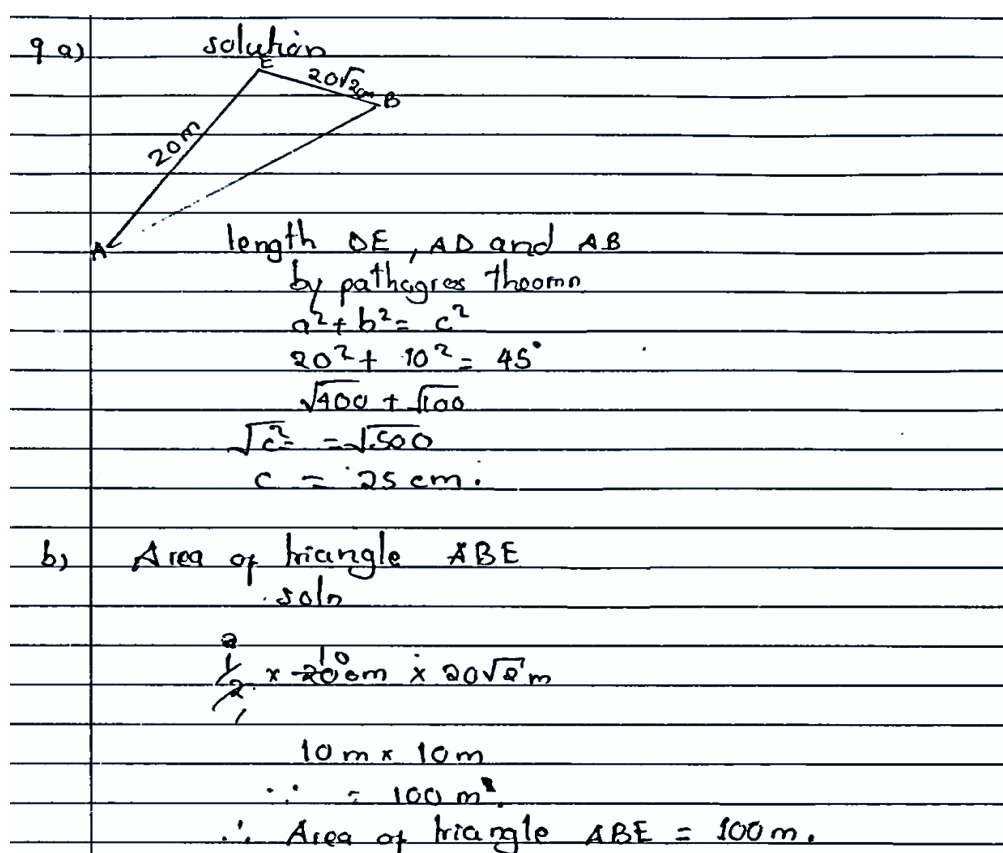 9 a) solution
E
20√2cm B
20m
A
length DE, AD and AB
by pathagres theomn
a² + b² = c²
20² + 10² = 45°
√400 + √100
√c² = √500
c = 25 cm.
b) Area of triangle ABE
soln
1/2 x 20 10 m x 20√2 m
10 m x 10 m
∴ = 100 m².
∴ Area of triangle ABE = 100m.